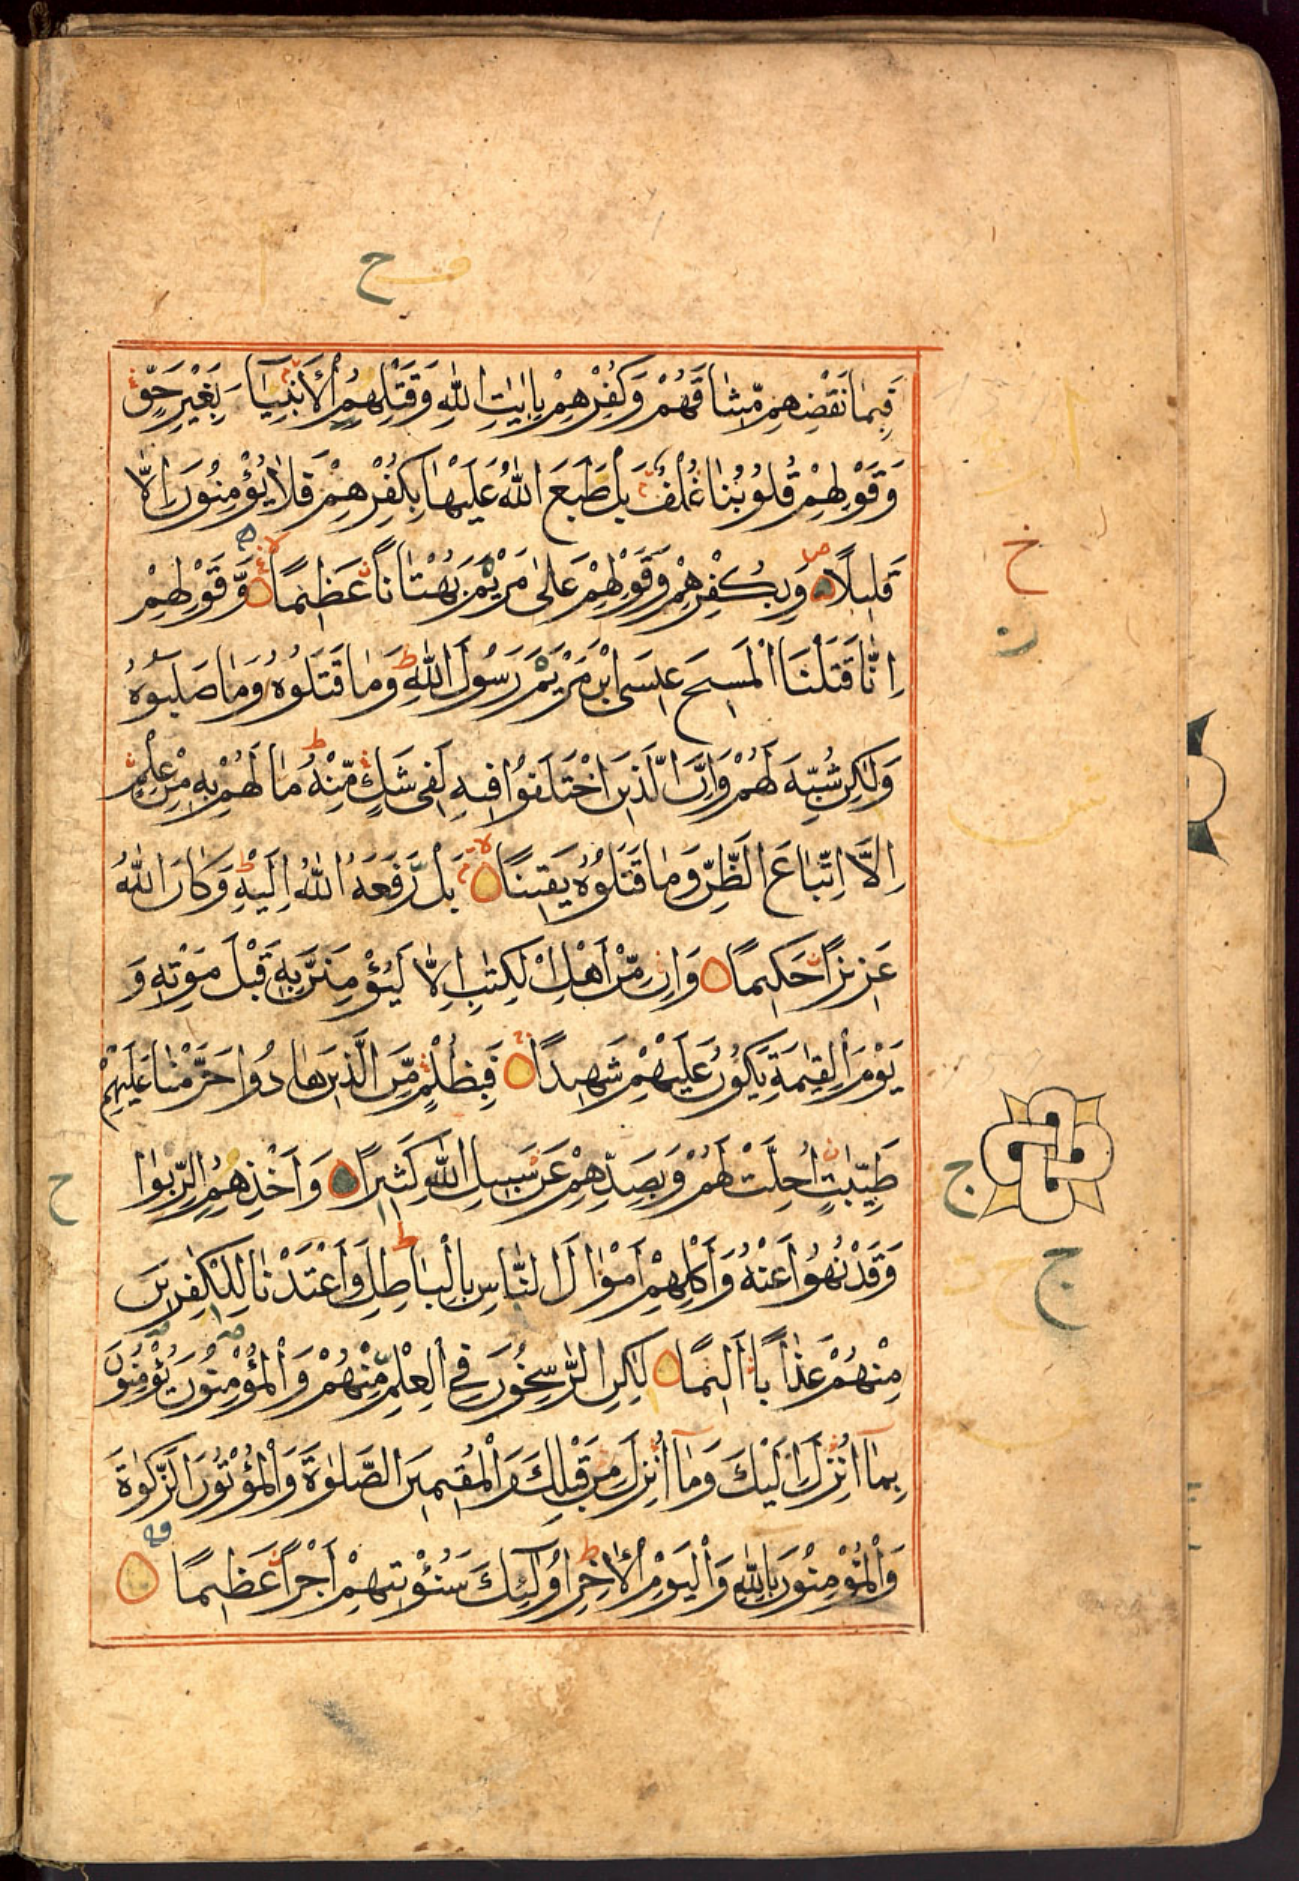 فَبِمَا نَقْضِهِمْ مِّيثَاقَهُمْ وَكُفْرِهِمْ بِاٰيٰتِ اللّٰهِ وَقَتْلِهِمُ الْاَنْبِيَآءَ بِغَيْرِ حَقٍّ
وَّقَوْلِهِمْ قُلُوْبُنَا غُلْفٌ بَلْ طَبَعَ اللّٰهُ عَلَيْهَا بِكُفْرِهِمْ فَلَا يُؤْمِنُوْنَ اِلَّا
قَلِيْلًا وَبِكُفْرِهِمْ وَقَوْلِهِمْ عَلٰى مَرْيَمَ بُهْتَانًا عَظِيْمًا وَّقَوْلِهِمْ
اِنَّا قَتَلْنَا الْمَسِيْحَ عِيْسَى ابْنَ مَرْيَمَ رَسُوْلَ اللّٰهِ وَمَا قَتَلُوْهُ وَمَا صَلَبُوْهُ
وَلٰكِنْ شُبِّهَ لَهُمْ وَاِنَّ الَّذِيْنَ اخْتَلَفُوْا فِيْهِ لَفِيْ شَكٍّ مِّنْهُ مَا لَهُمْ بِهٖ مِنْ عِلْمٍ
اِلَّا اتِّبَاعَ الظَّنِّ وَمَا قَتَلُوْهُ يَقِيْنًا بَلْ رَّفَعَهُ اللّٰهُ اِلَيْهِ وَكَانَ اللّٰهُ
عَزِيْزًا حَكِيْمًا وَاِنْ مِّنْ اَهْلِ الْكِتٰبِ اِلَّا لَيُؤْمِنَنَّ بِهٖ قَبْلَ مَوْتِهٖ وَ
يَوْمَ الْقِيٰمَةِ يَكُوْنُ عَلَيْهِمْ شَهِيْدًا فَبِظُلْمٍ مِّنَ الَّذِيْنَ هَادُوْا حَرَّمْنَا عَلَيْهِمْ
طَيِّبٰتٍ اُحِلَّتْ لَهُمْ وَبِصَدِّهِمْ عَنْ سَبِيْلِ اللّٰهِ كَثِيْرًا وَاَخْذِهِمُ الرِّبٰوا
وَقَدْ نُهُوْا عَنْهُ وَاَكْلِهِمْ اَمْوَالَ النَّاسِ بِالْبَاطِلِ وَاَعْتَدْنَا لِلْكٰفِرِيْنَ
مِنْهُمْ عَذَابًا اَلِيْمًا لٰكِنِ الرّٰسِخُوْنَ فِي الْعِلْمِ مِنْهُمْ وَالْمُؤْمِنُوْنَ يُؤْمِنُوْنَ
بِمَآ اُنْزِلَ اِلَيْكَ وَمَآ اُنْزِلَ مِنْ قَبْلِكَ وَالْمُقِيْمِيْنَ الصَّلٰوةَ وَالْمُؤْتُوْنَ الزَّكٰوةَ
وَالْمُؤْمِنُوْنَ بِاللّٰهِ وَالْيَوْمِ الْاٰخِرِ اُولٰٓئِكَ سَنُؤْتِيْهِمْ اَجْرًا عَظِيْمًا